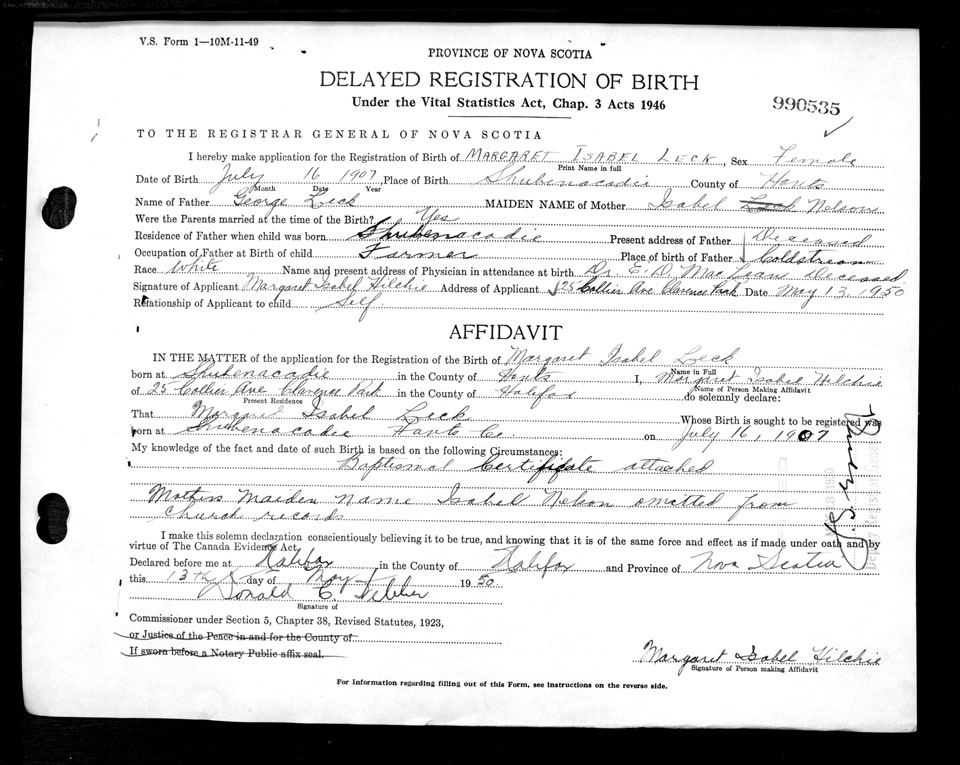 V.S. Form 1—10M-11-49
PROVINCE OF NOVA SCOTIA
DELAYED REGISTRATION OF BIRTH
Under the Vital Statistics Act, Chap. 3 Acts 1946
990535
TO THE REGISTRAR GENERAL OF NOVA SCOTIA
I hereby make application for the Registration of Birth of MARGARET ISABEL LECK, Sex Female
Print Name in full
Date of Birth July 16 1907, Place of Birth Shubenacadie County of Hants
Month Date Year
Name of Father George Leck MAIDEN NAME of Mother Isabel Leck Nelson
Were the Parents married at the time of the Birth? Yes
Residence of Father when child was born Shubenacadie Present address of Father Deceased
Occupation of Father at Birth of child Farmer Place of birth of Father Coldstream
Race White Name and present address of Physician in attendance at birth Dr. E. D. MacLean Deceased
Signature of Applicant Margaret Isabel Hilchie Address of Applicant 25 Collier Ave Clarence Park Date May 13, 1950
Relationship of Applicant to child Self
AFFIDAVIT
IN THE MATTER of the application for the Registration of the Birth of Margaret Isabel Leck
Name in Full
born at Shubenacadie in the County of Hants I, Margaret Isabel Hilchie
Name of Person Making Affidavit
of 25 Collier Ave Clarence Park in the County of Halifax do solemnly declare:
Present Residence
That Margaret Isabel Leck Whose Birth is sought to be registered was
born at Shubenacadie Hants Co. on July 16, 1907
My knowledge of the fact and date of such Birth is based on the following Circumstances:
Baptismal Certificate attached
Mothers maiden name Isabel Nelson omitted from
church records
I make this solemn declaration conscientiously believing it to be true, and knowing that it is of the same force and effect as if made under oath and by
virtue of The Canada Evidence Act.
Declared before me at Halifax in the County of Halifax and Province of Nova Scotia
this 13th day of May 1950
Donald C.
Signature of
Commissioner under Section 5, Chapter 38, Revised Statutes, 1923,
or Justice of the Peace in and for the County of
If sworn before a Notary Public affix seal.
Margaret Isabel Hilchie
Signature of Person making Affidavit
For Information regarding filling out of this Form, see instructions on the reverse side.